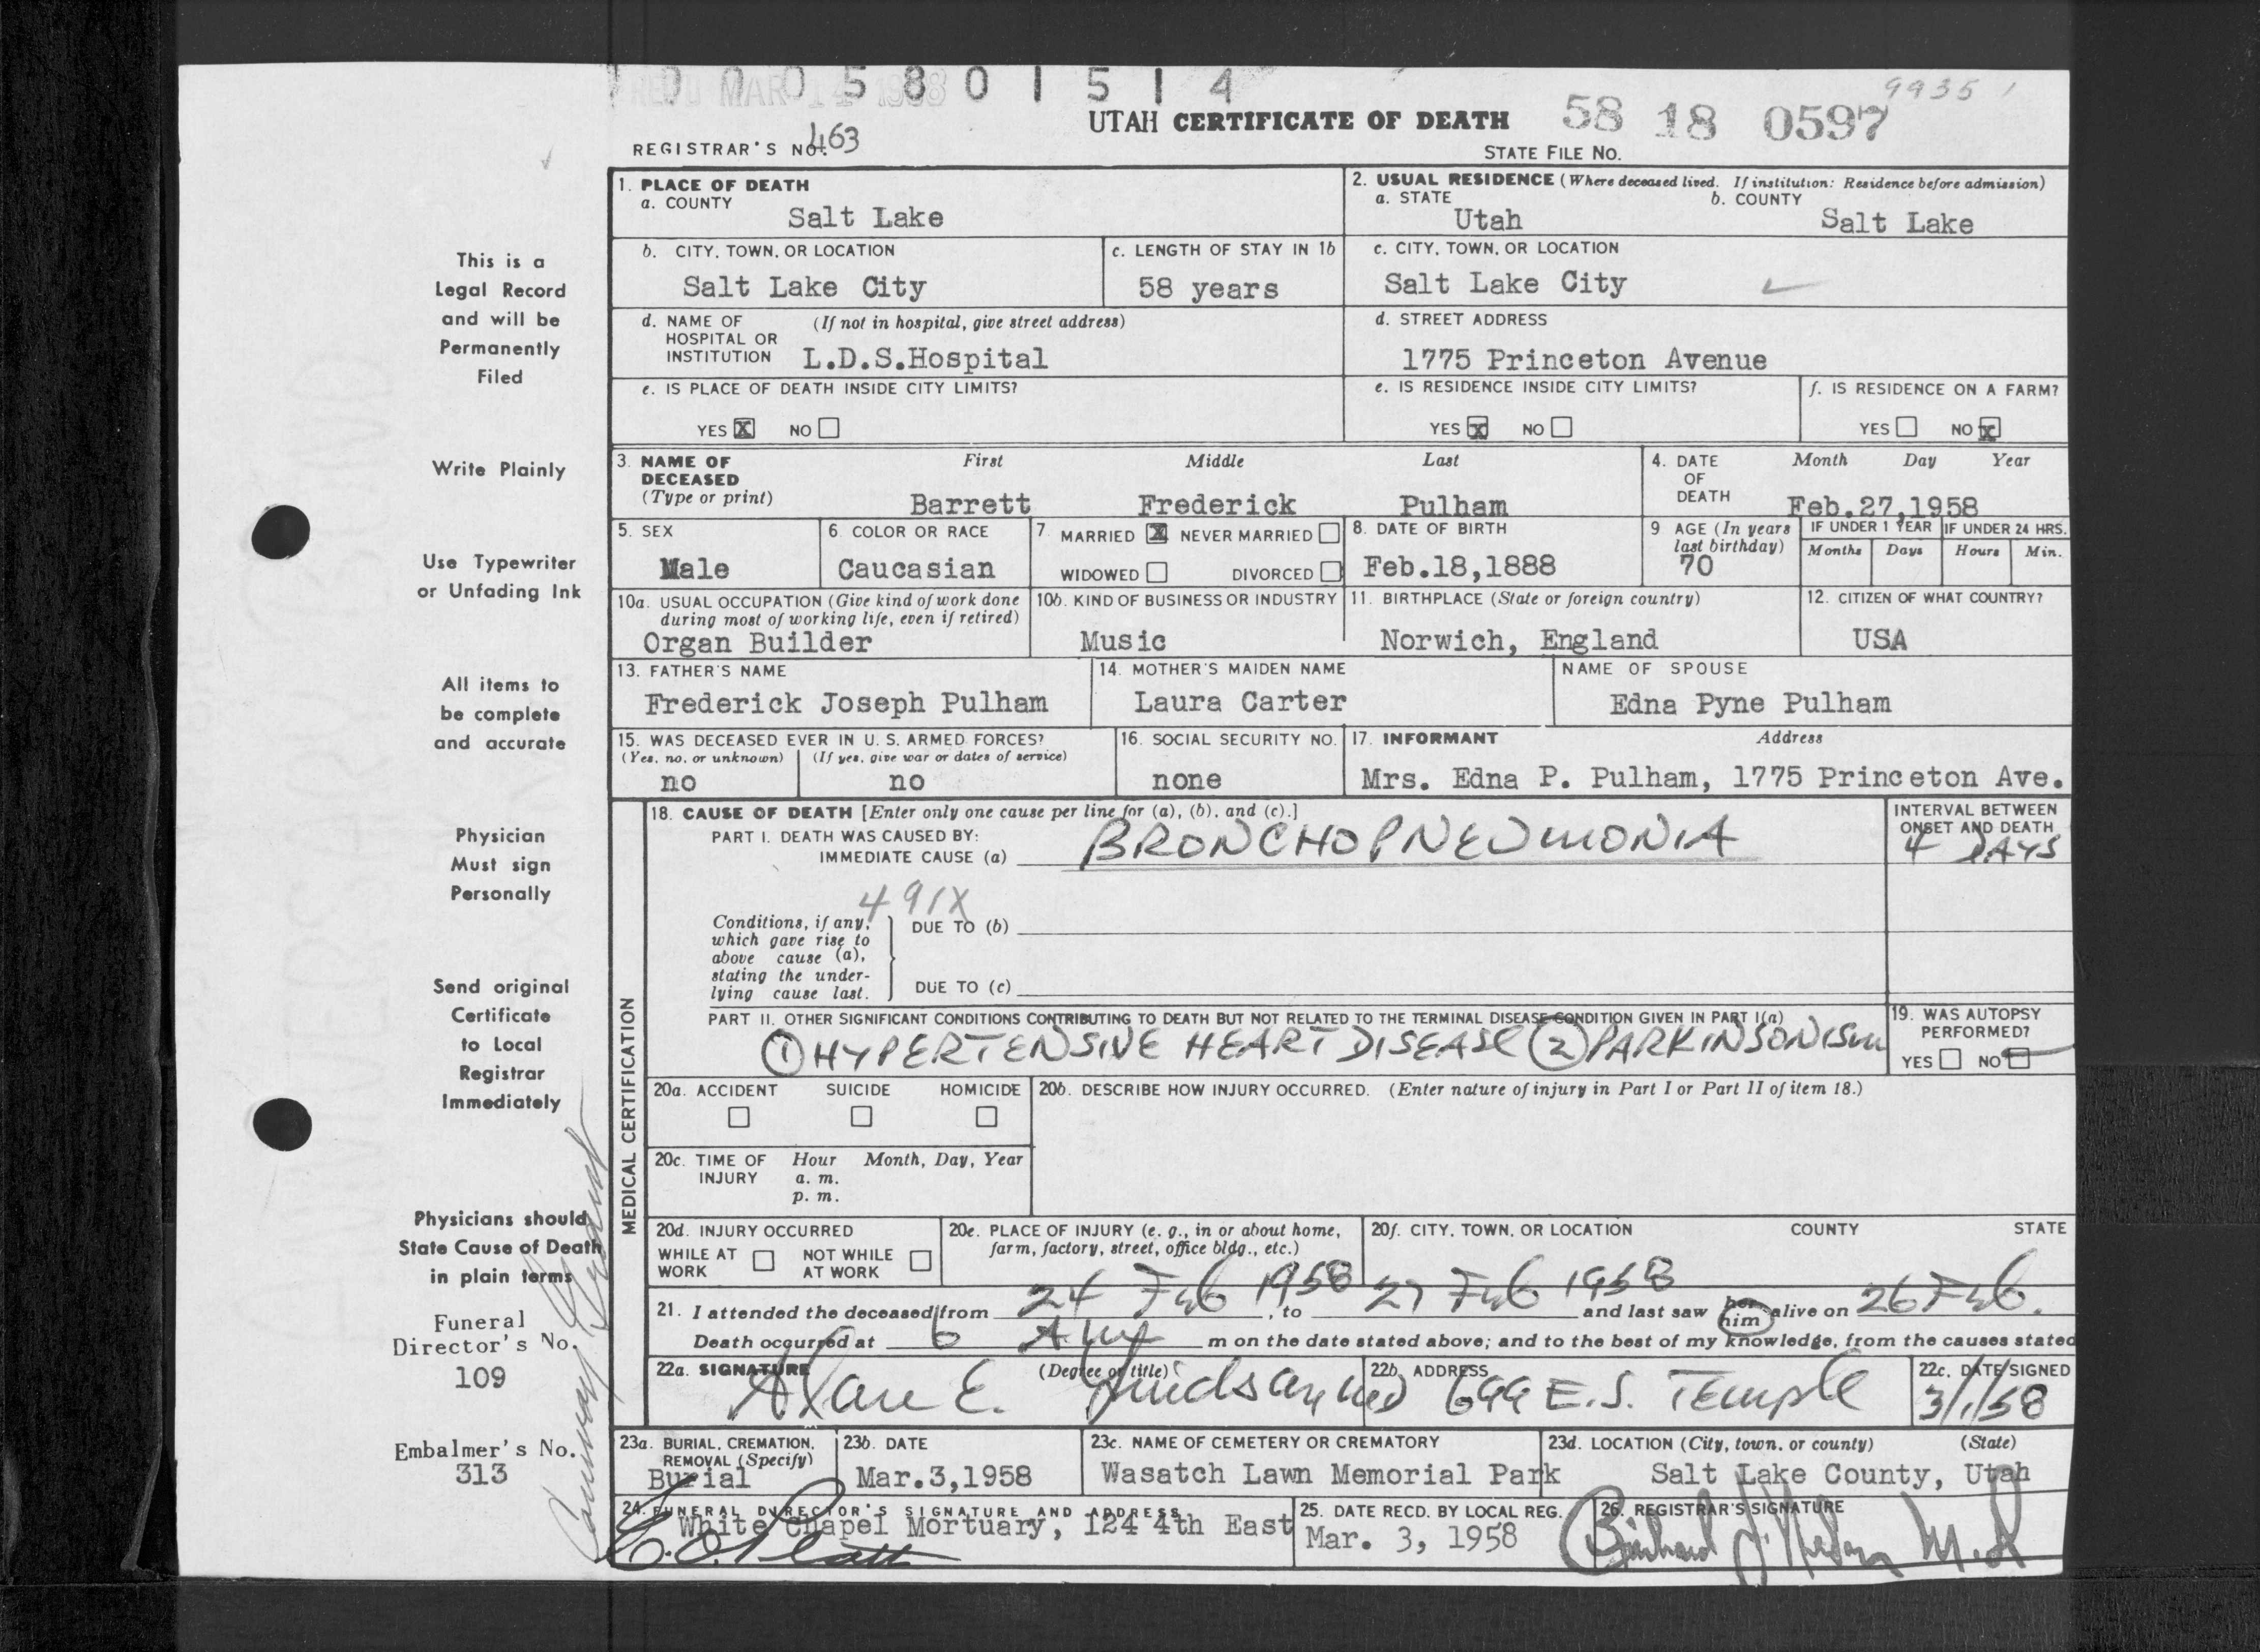 0 0 0 5 8 0 1 5 1 4
MAR 14 1958
9935
UTAH CERTIFICATE OF DEATH 58 18 0597
REGISTRAR'S NO. 463
STATE FILE NO.
1. PLACE OF DEATH
a. COUNTY
Salt Lake
2. USUAL RESIDENCE (Where deceased lived. If institution: Residence before admission)
a. STATE b. COUNTY
Utah Salt Lake
b. CITY, TOWN, OR LOCATION
Salt Lake City
c. LENGTH OF STAY IN 1b
58 years
c. CITY, TOWN, OR LOCATION
Salt Lake City
d. NAME OF HOSPITAL OR INSTITUTION (If not in hospital, give street address)
L.D.S.Hospital
d. STREET ADDRESS
1775 Princeton Avenue
e. IS PLACE OF DEATH INSIDE CITY LIMITS?
YES X NO
e. IS RESIDENCE INSIDE CITY LIMITS?
YES X NO
f. IS RESIDENCE ON A FARM?
YES NO X
3. NAME OF DECEASED (Type or print)
First Middle Last
Barrett Frederick Pulham
4. DATE OF DEATH Month Day Year
Feb.27,1958
5. SEX
Male
6. COLOR OR RACE
Caucasian
7. MARRIED X NEVER MARRIED
WIDOWED DIVORCED
8. DATE OF BIRTH
Feb.18,1888
9 AGE (In years last birthday)
70
IF UNDER 1 YEAR
Months Days
IF UNDER 24 HRS.
Hours Min.
10a. USUAL OCCUPATION (Give kind of work done during most of working life, even if retired)
Organ Builder
10b. KIND OF BUSINESS OR INDUSTRY
Music
11. BIRTHPLACE (State or foreign country)
Norwich, England
12. CITIZEN OF WHAT COUNTRY?
USA
13. FATHER'S NAME
Frederick Joseph Pulham
14. MOTHER'S MAIDEN NAME
Laura Carter
NAME OF SPOUSE
Edna Pyne Pulham
15. WAS DECEASED EVER IN U. S. ARMED FORCES?
(Yes, no, or unknown) (If yes, give war or dates of service)
no no
16. SOCIAL SECURITY NO.
none
17. INFORMANT Address
Mrs. Edna P. Pulham, 1775 Princeton Ave.
MEDICAL CERTIFICATION
18. CAUSE OF DEATH [Enter only one cause per line for (a), (b), and (c).]
PART I. DEATH WAS CAUSED BY:
IMMEDIATE CAUSE (a) BRONCHOPNEUMONIA
INTERVAL BETWEEN ONSET AND DEATH
4 DAYS
491X
Conditions, if any, which gave rise to above cause (a), stating the underlying cause last.
DUE TO (b)
DUE TO (c)
PART II. OTHER SIGNIFICANT CONDITIONS CONTRIBUTING TO DEATH BUT NOT RELATED TO THE TERMINAL DISEASE CONDITION GIVEN IN PART I(a)
① HYPERTENSIVE HEART DISEASE ② PARKINSONISM
19. WAS AUTOPSY PERFORMED?
YES NO
20a. ACCIDENT SUICIDE HOMICIDE
20b. DESCRIBE HOW INJURY OCCURRED. (Enter nature of injury in Part I or Part II of item 18.)
20c. TIME OF INJURY Hour Month, Day, Year
a. m.
p. m.
20d. INJURY OCCURRED
WHILE AT WORK NOT WHILE AT WORK
20e. PLACE OF INJURY (e. g., in or about home, farm, factory, street, office bldg., etc.)
20f. CITY, TOWN, OR LOCATION COUNTY STATE
21. I attended the deceased from 24 Feb 1958, to 27 Feb 1958 and last saw her him alive on 26 Feb.
Death occurred at 6 AM m on the date stated above; and to the best of my knowledge, from the causes stated
22a. SIGNATURE (Degree or title)
Alan E. Lindsay MD
22b. ADDRESS
699 E. S. Temple
22c. DATE SIGNED
3/1/58
23a. BURIAL, CREMATION, REMOVAL (Specify)
Burial
23b. DATE
Mar.3,1958
23c. NAME OF CEMETERY OR CREMATORY
Wasatch Lawn Memorial Park
23d. LOCATION (City, town, or county) (State)
Salt Lake County, Utah
24. FUNERAL DIRECTOR'S SIGNATURE AND ADDRESS
White Chapel Mortuary, 124 4th East
25. DATE RECD. BY LOCAL REG.
Mar. 3, 1958
26. REGISTRAR'S SIGNATURE
M.D.
This is a
Legal Record
and will be
Permanently
Filed
Write Plainly
Use Typewriter
or Unfading Ink
All items to
be complete
and accurate
Physician
Must sign
Personally
Send original
Certificate
to Local
Registrar
Immediately
Physicians should
State Cause of Death
in plain terms
Funeral
Director's No.
109
Embalmer's No.
313